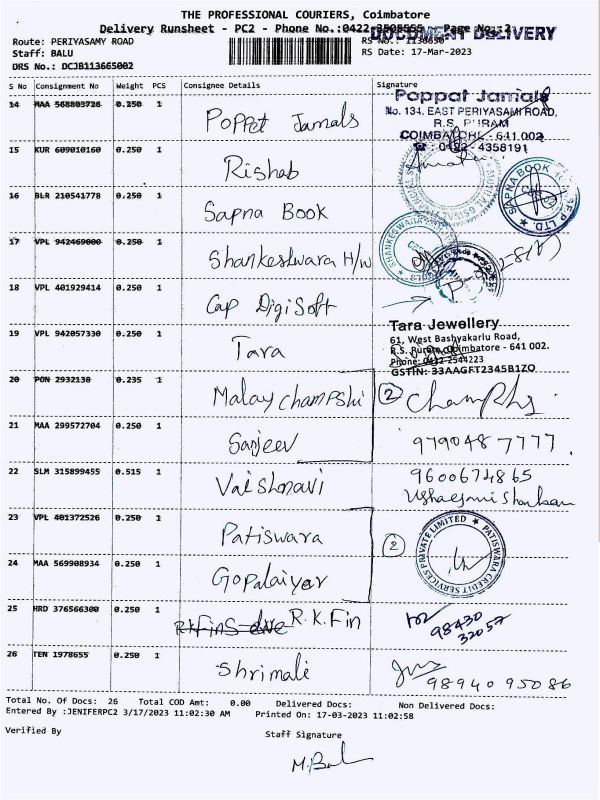 THE PROFESSIONAL COURIERS, Coimbatore
Delivery Runsheet - PC2 - Phone No.:0422 3505555 Page No.:2
DOCUMENT DELIVERY
Route: PERIYASAMY ROAD
Staff: BALU
RS Date: 17-Mar-2023
DRS No.: DCJB113665002
S No Consignment No Weight PCS Consignee Details Signature
14 MAA 568803726 0.250 1 Poppet Jamals
Poppat Jamals
No. 134, EAST PERIYASAMI ROAD,
R.S. PURAM
COIMBATORE - 641 002
☎ : 0422 - 4358191
15 KUR 609010160 0.250 1 Rishab
16 BLR 210541778 0.250 1 Sapna Book
17 VPL 942469000 0.250 1 Shankeshwara H/w
18 VPL 401929414 0.250 1 Cap DigiSoft
19 VPL 942057330 0.250 1 Tara
Tara Jewellery
61, West Bashyakarlu Road,
R.S. Puram, Coimbatore - 641 002.
Phone: 0422-2544223
GSTIN: 33AAGFT2345B1ZO
20 PON 2932138 0.235 1 Malay champshi 2
21 MAA 299572704 0.250 1 Sanjeev 9790487777.
22 SLM 315899455 0.515 1 Vaishnavi 9600674865
23 VPL 401372526 0.250 1 Patiswara 2
PATISWARA CREDIT SERVICES PRIVATE LIMITED
24 MAA 569908934 0.250 1 Gopalaiyer
25 HRD 376566300 0.250 1 R.K.Fin
98430
32057
26 TEN 1978655 0.250 1 Shrimali
9894095086
Total No. Of Docs: 26 Total COD Amt: 0.00 Delivered Docs: Non Delivered Docs:
Entered By :JENIFERPC2 3/17/2023 11:02:30 AM Printed On: 17-03-2023 11:02:58
Verified By Staff Signature
M. Bal